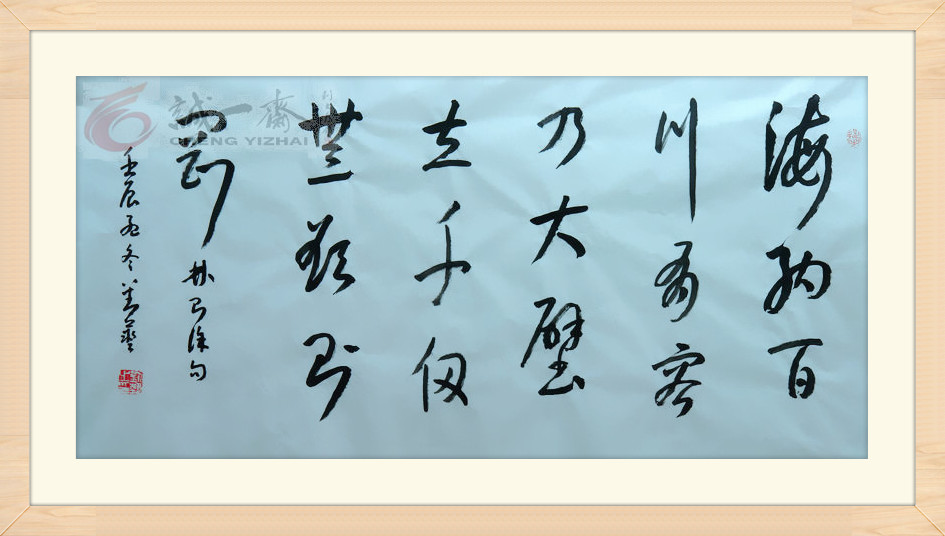 海纳百
川有容
乃大壁
立千仞
無欲则
剛 林则徐句
壬辰孟冬
誠一齋
CHENG YIZHAI